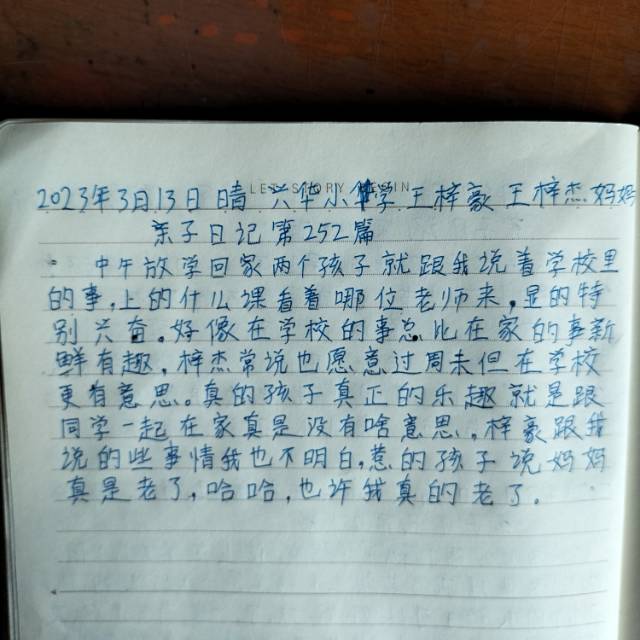 2023年3月13日 晴 兴华小学王梓豪 王梓杰妈妈
亲子日记第252篇
中午放学回家两个孩子就跟我说着学校里
的事,上的什么课看着哪位老师来,显的特
别兴奋。好像在学校的事总比在家的事新
鲜有趣,梓杰常说也愿意过周末但在学校
更有意思。真的孩子真正的乐趣就是跟
同学一起在家真是没有啥意思。梓豪跟我
说的些事情我也不明白,惹的孩子说妈妈
真是老了,哈哈,也许我真的老了。